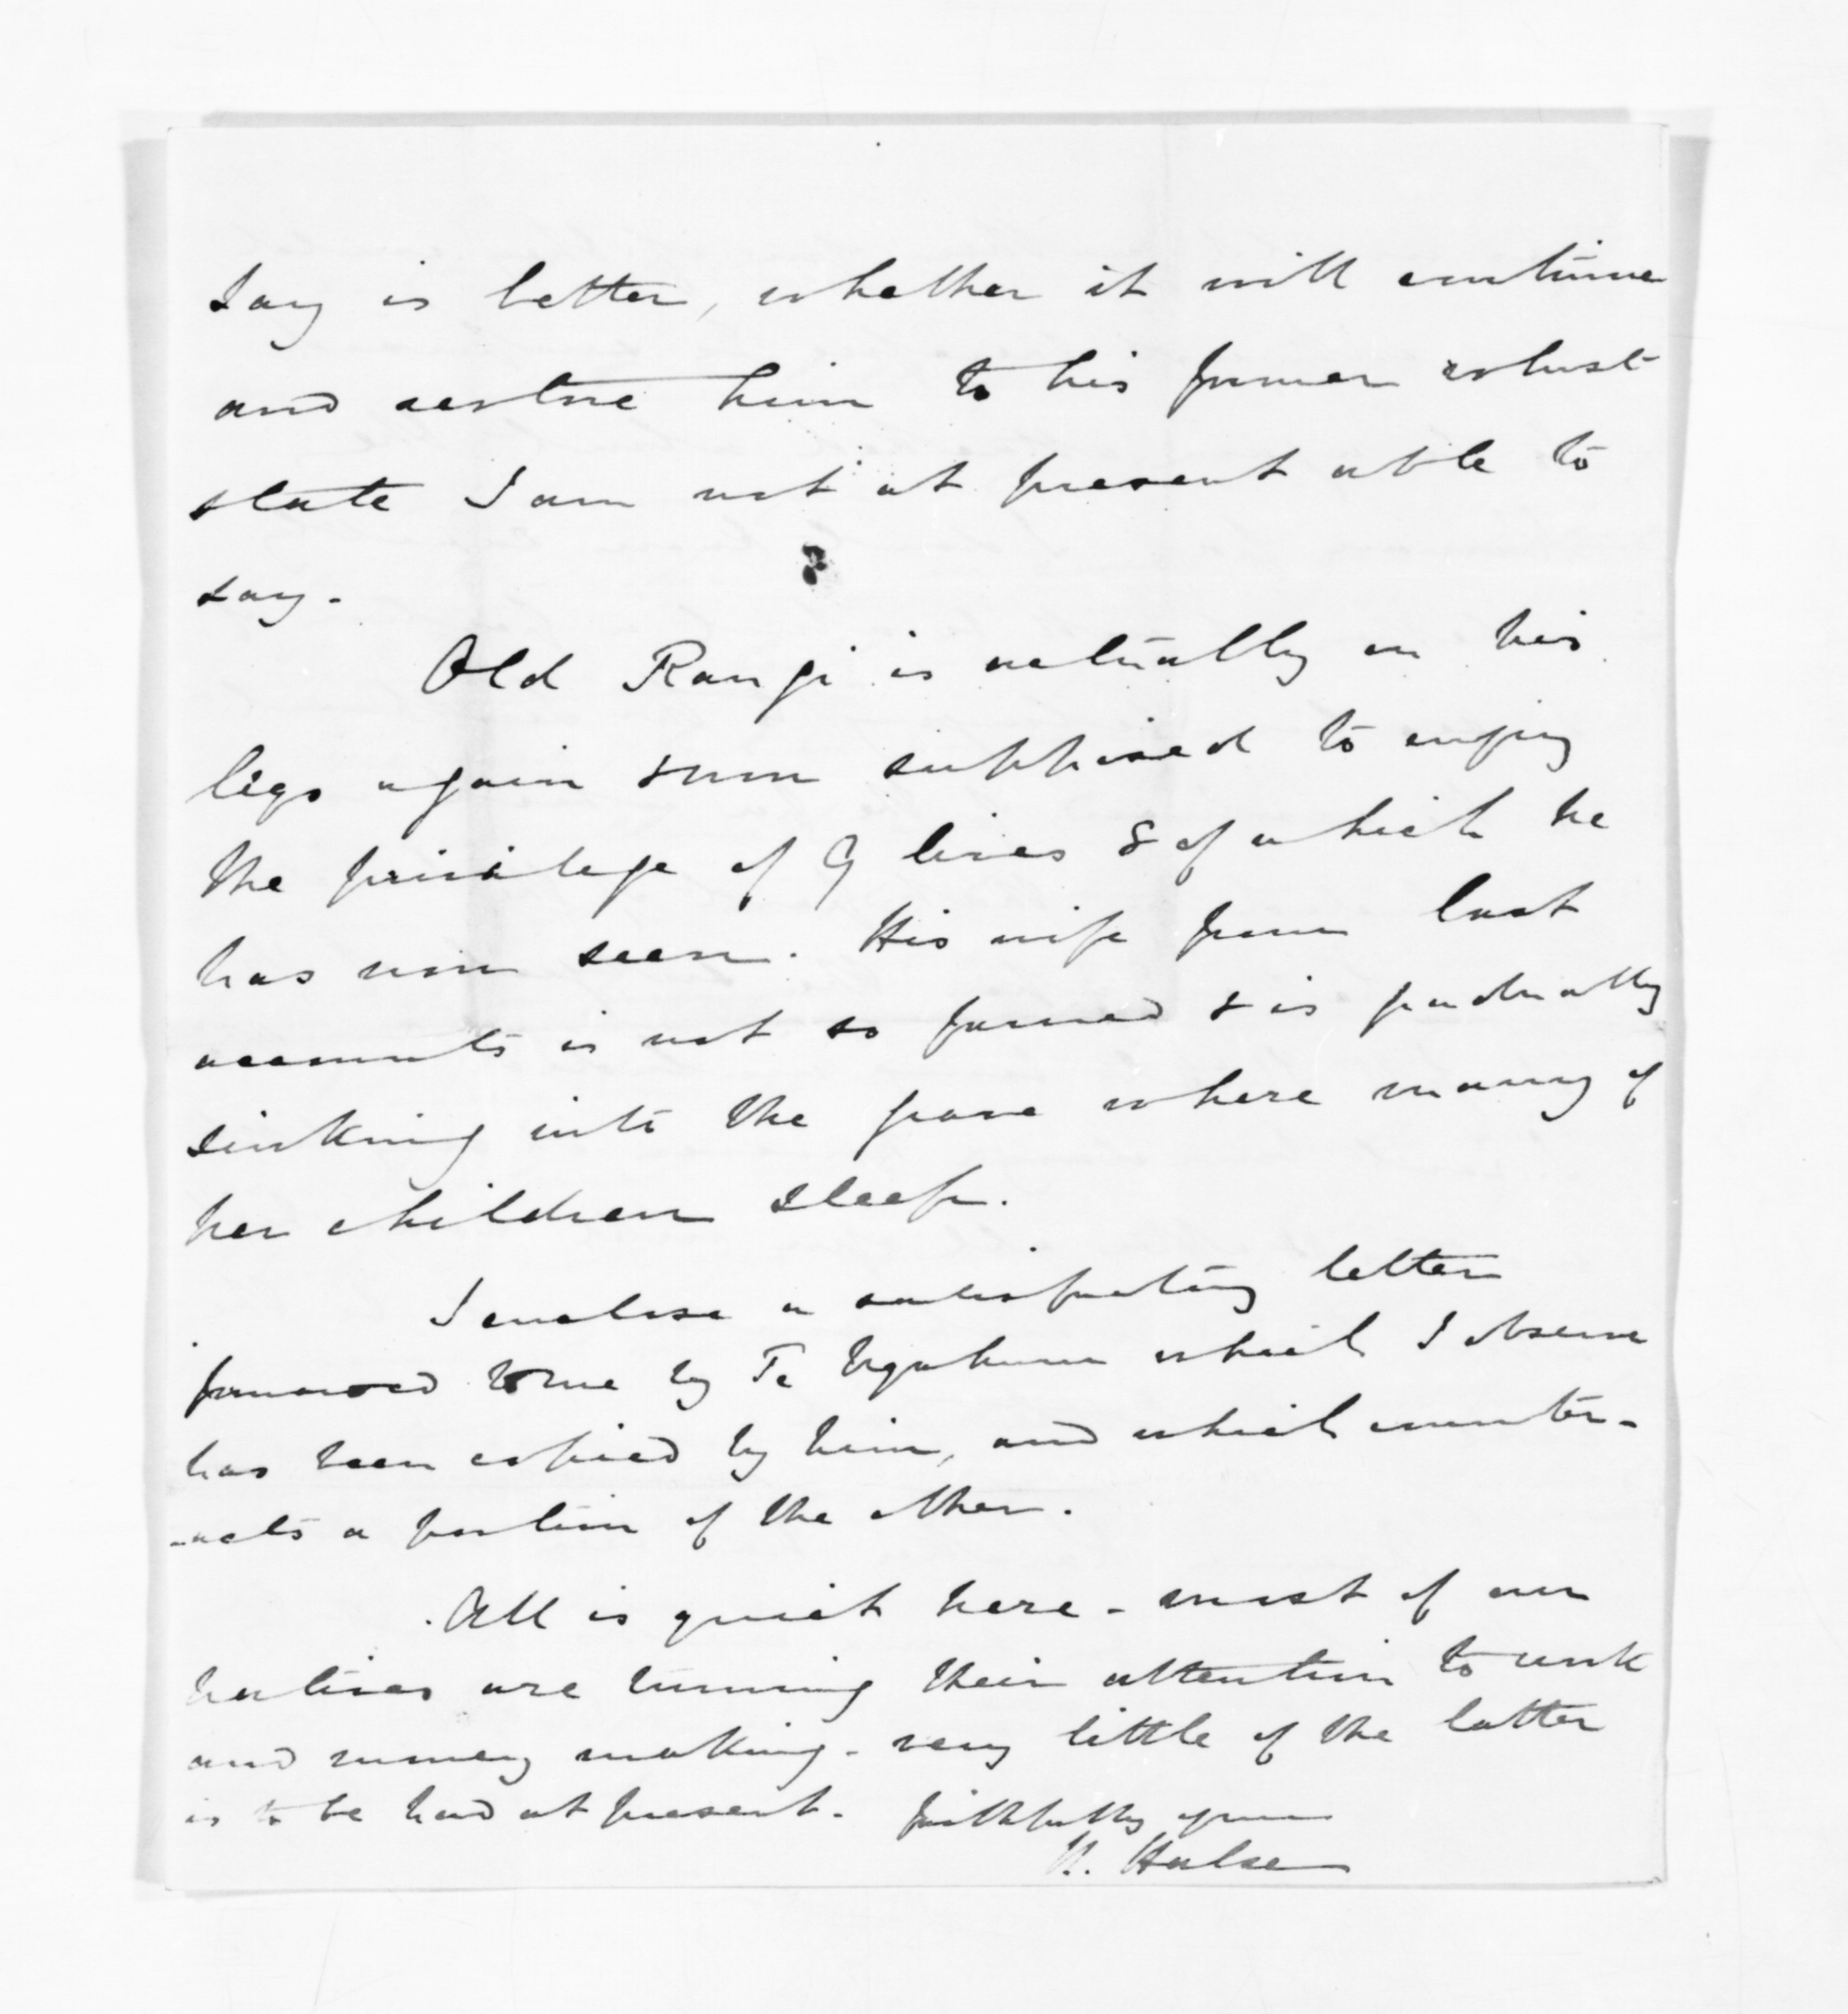 say is better, whether it will continue
and restore him to his former robust
state I am not at present able to
say.
Old Rangi is actually on his
legs again supposed to enjoy
the privilege of 9 lives & of which he
has now seen. His wife from last
accounts is not so & is gradually
sinking into the grave where many of
her children sleep.
I enclose a satisfactory letter
forwarded to me by Te Ngahuru which I observe
has been copied by him, and which counter-
-acts a portion of the other.
All is quiet here - most of our
natives are turning their attention to work
and money making - very little of the latter
is to be had at present. faithfully yours
H. Halse